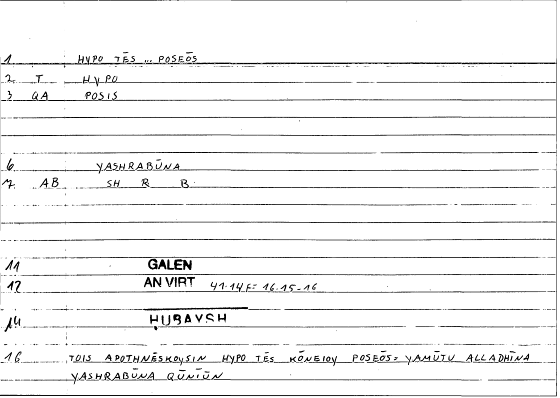 1 HYPO TĒS ... POSEŌS
2 T HYPO
3 QA POSIS
6 YASHRABŪNA
7 AB SH R B
11 GALEN
12 AN VIRT 41.14F= 16.15-16
14 ḤUBAYSH
16 TOIS APOTHNĒSKOYSIN HYPO TĒS KŌNEIOY POSEŌS= YAMŪTU ALLADHĪNA
YASHRABŪNA QŪNIŪN